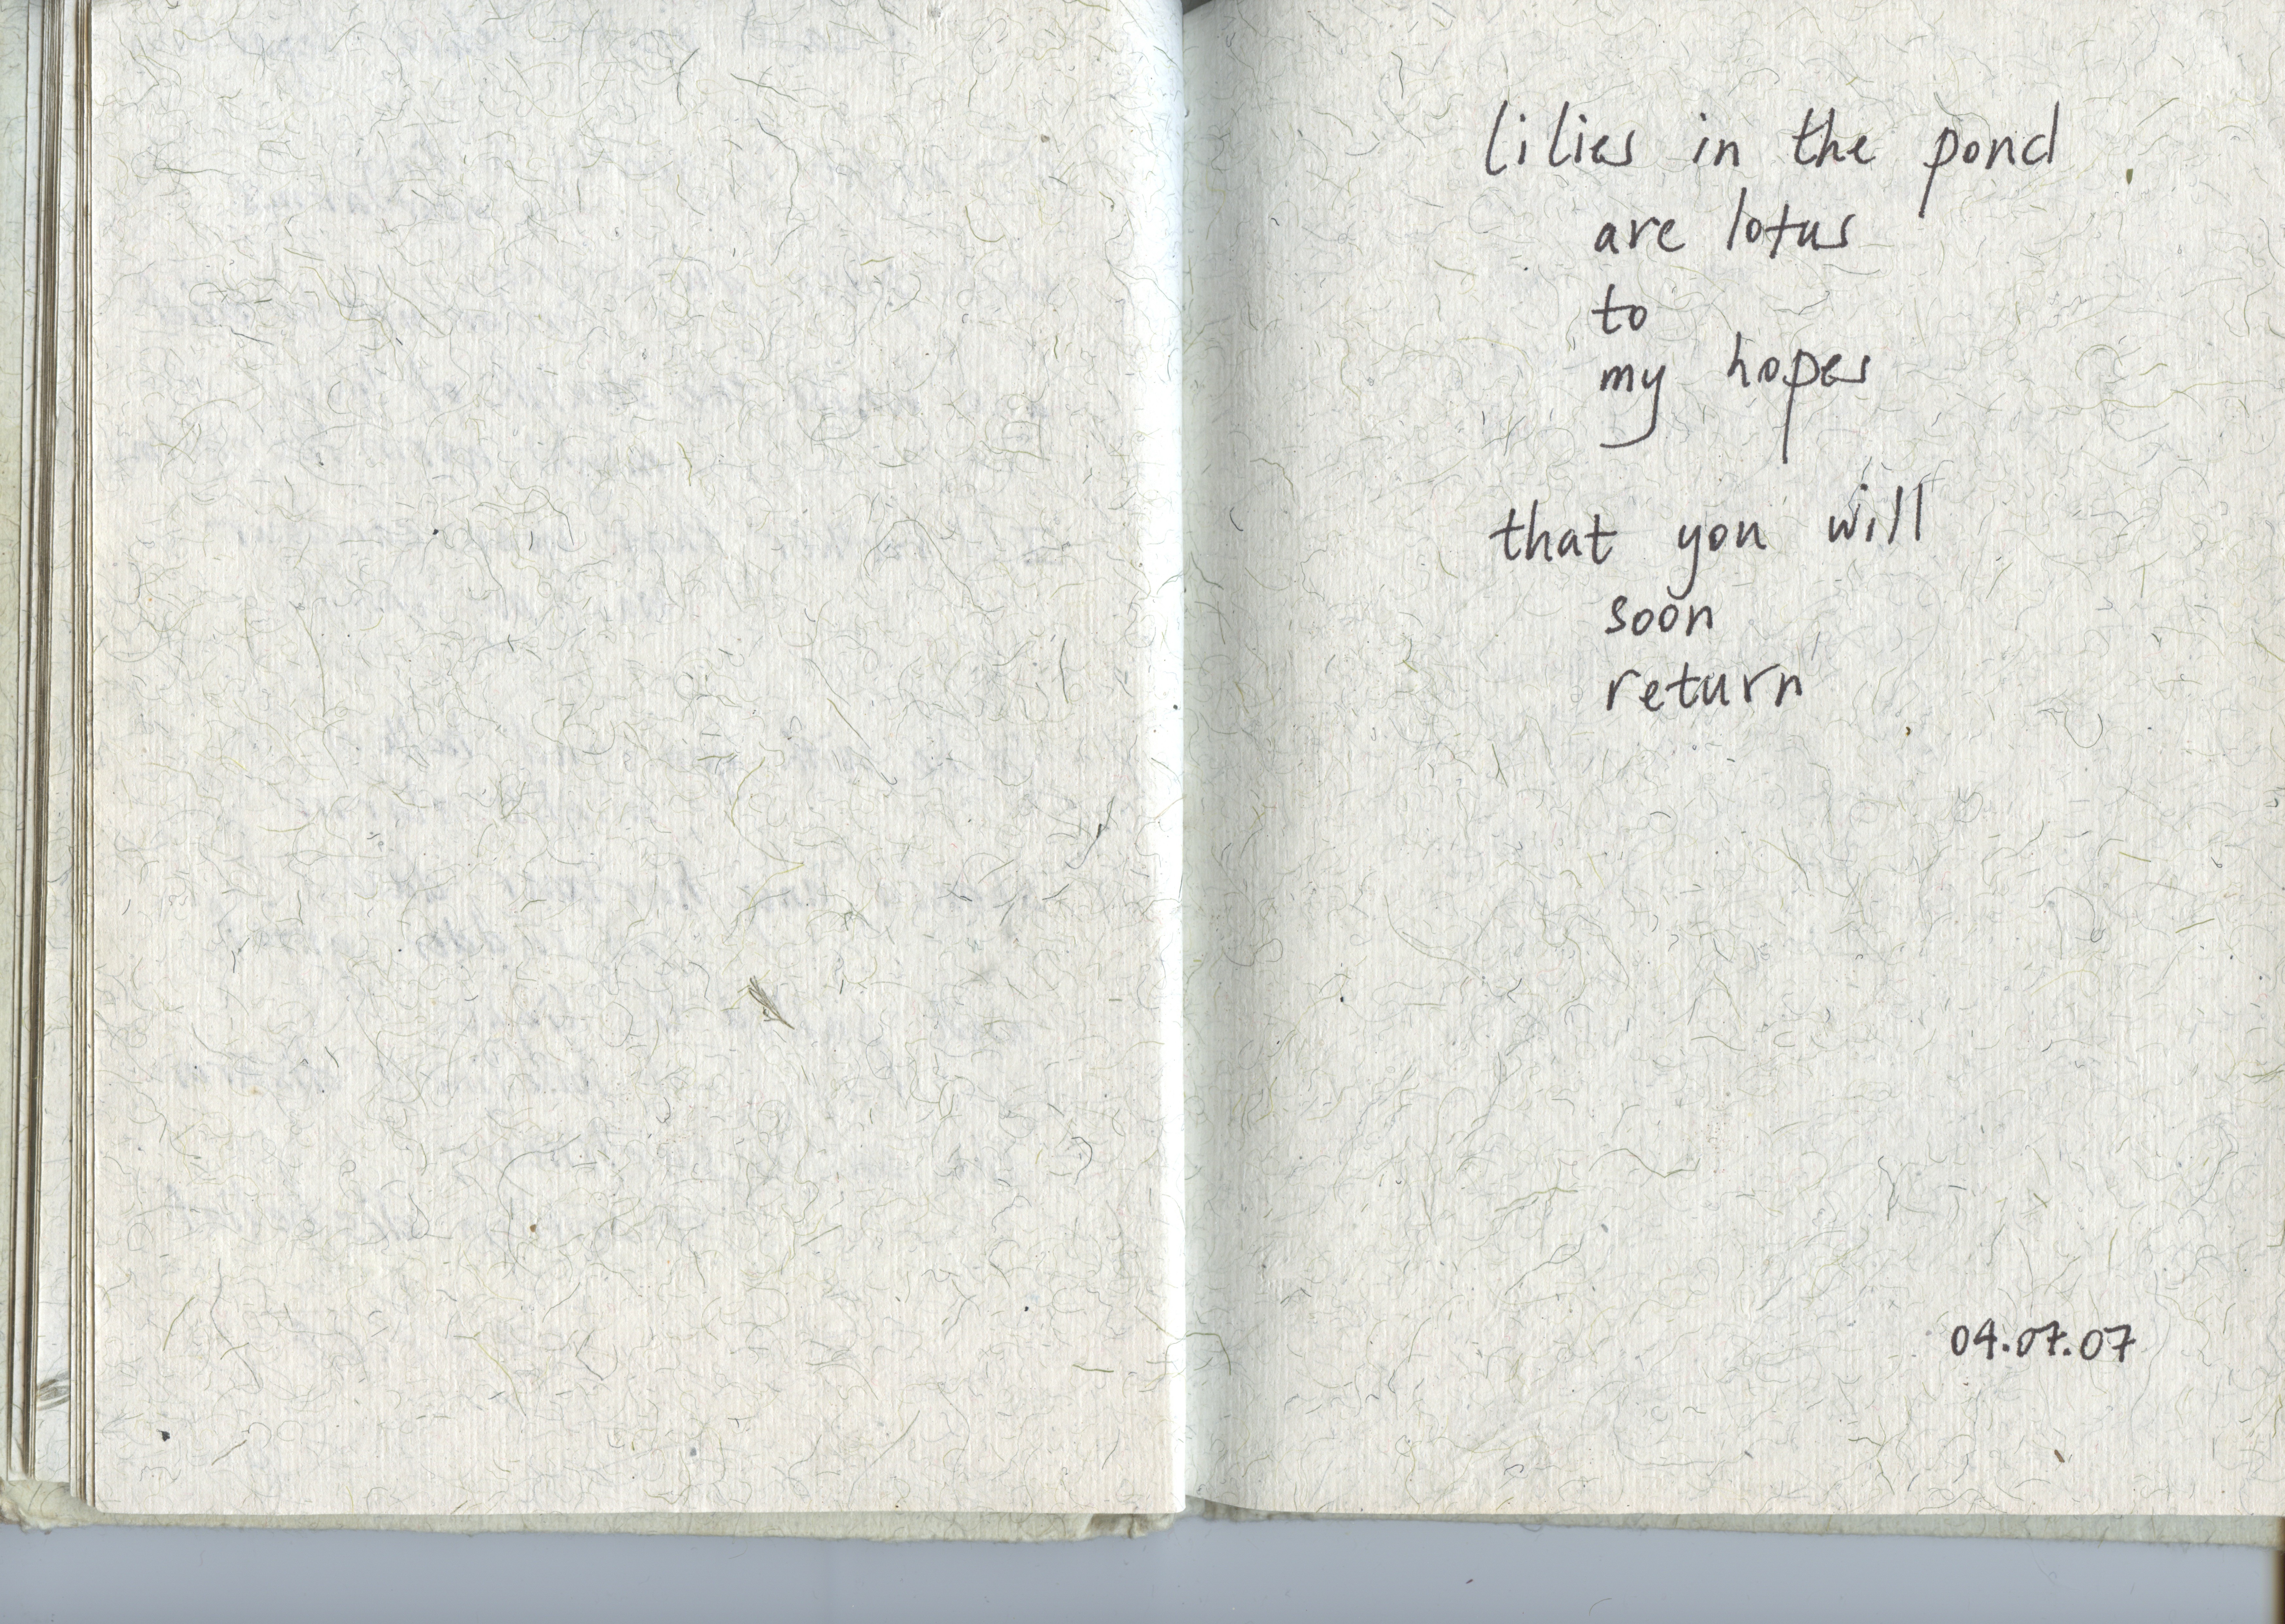 lilies in the pond
are lotus
to
my hopes
that you will
soon
return
04.07.07